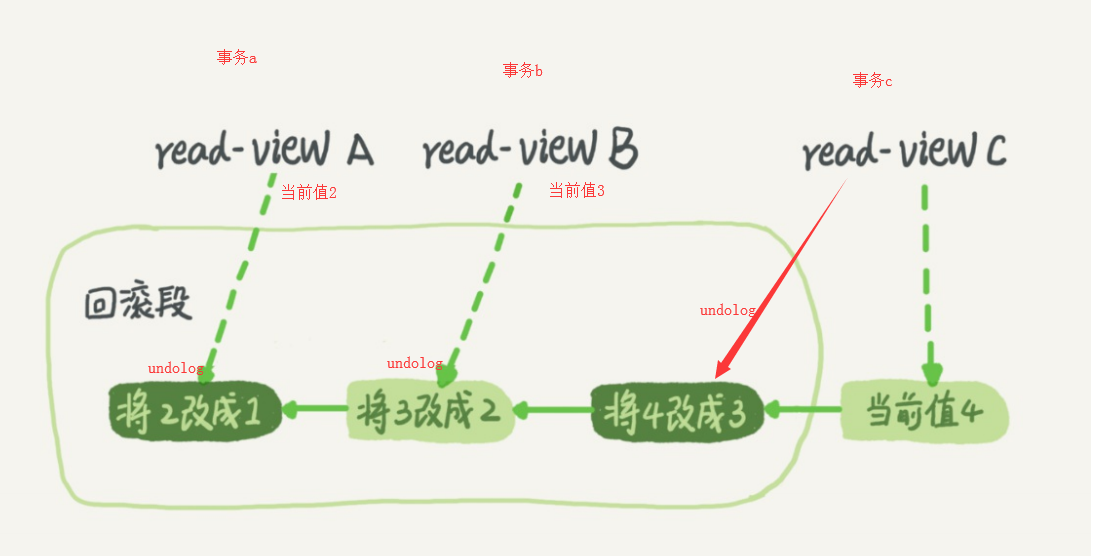 事务a
事务b
事务c
read-view A
read-view B
read-view C
当前值2
当前值3
回滚段
undolog
undolog
undolog
将2改成1
将3改成2
将4改成3
当前值4